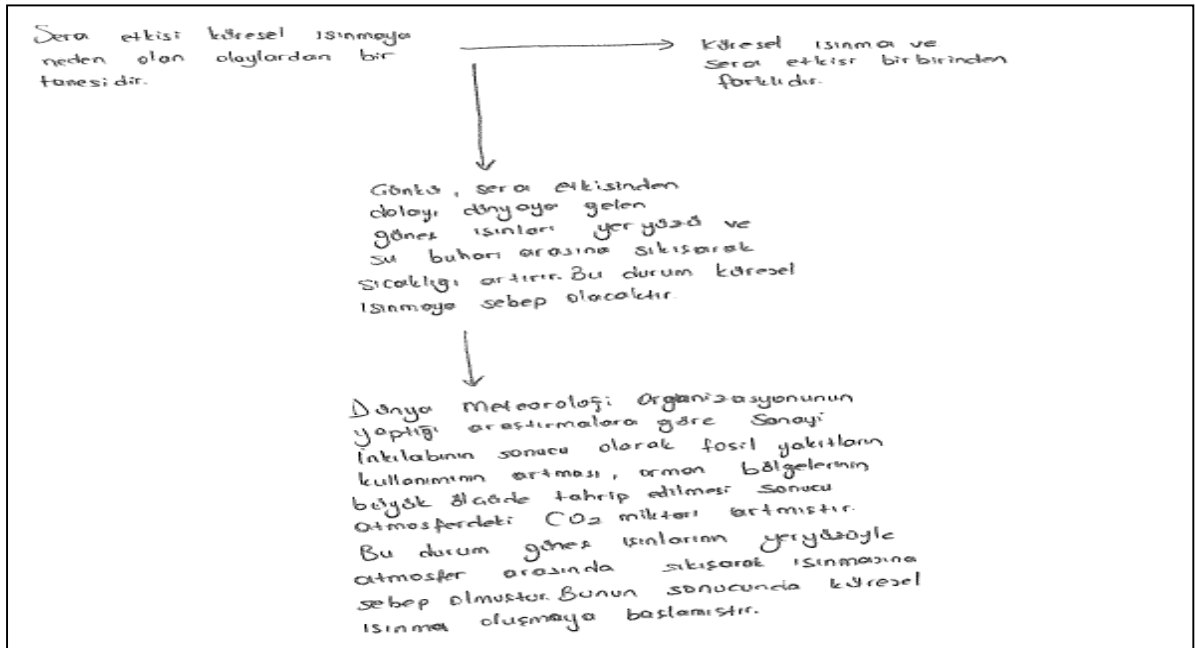 Sera etkisi küresel ısınmaya
neden olan olaylardan bir
tanesidir.
Küresel ısınma ve
sera etkisi birbirinden
farklıdır.
Çünkü, sera etkisinden
dolayı dünyaya gelen
güneş ışınları yer yüzü ve
su buharı arasına sıkışarak
sıcaklığı artırır. Bu durum küresel
ısınmaya sebep olacaktır.
Dünya Meteoroloji Organizasyonunun
yaptığı araştırmalara göre Sanayi
İnkılabının sonucu olarak fosil yakıtların
kullanımının artması, orman bölgelerinin
büyük ölçüde tahrip edilmesi sonucu
atmosferdeki CO2 miktarı artmıştır.
Bu durum güneş ışınlarının yeryüzüyle
atmosfer arasında sıkışarak ısınmasına
sebep olmuştur. Bunun sonucunda küresel
ısınma oluşmaya başlamıştır.